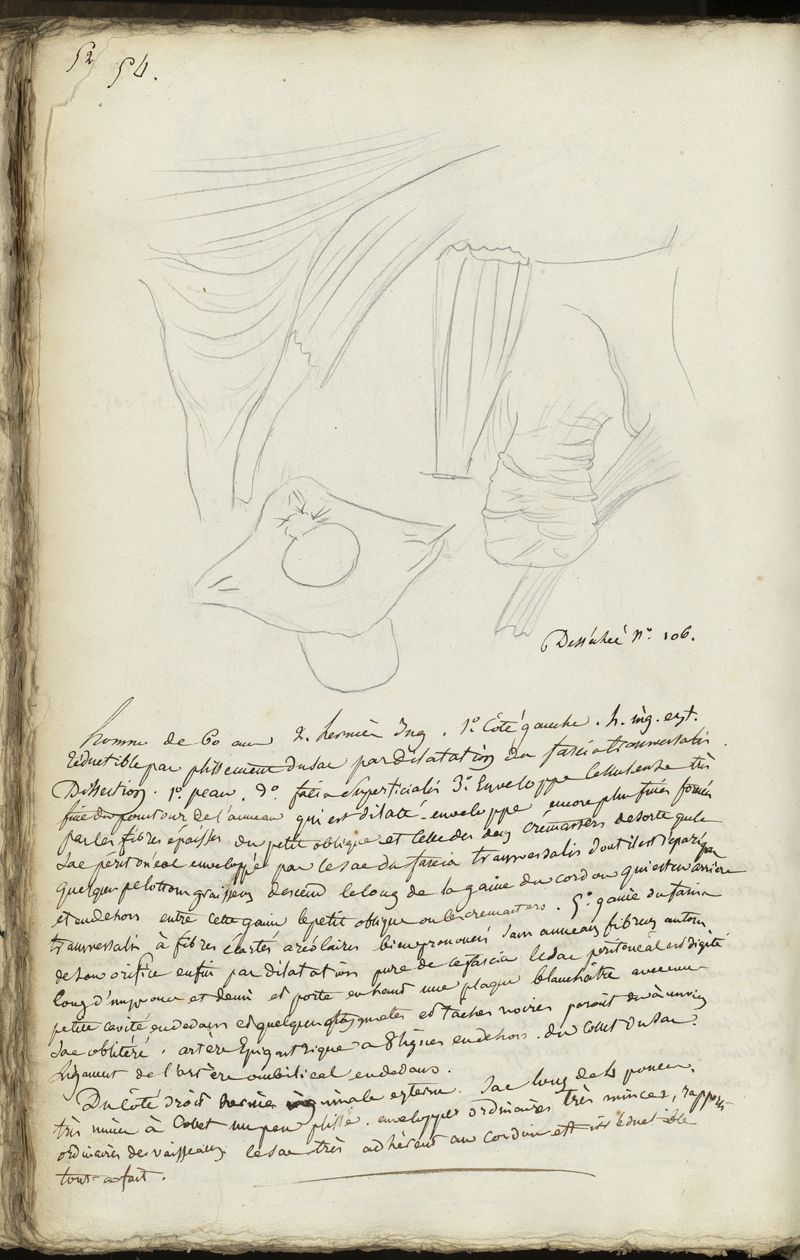 52 54.
Desséchée N.º 106.
homme de 60 ans 2. hernies Ing. 1º Côté gauche. h. ing. ext.
réductible par plissement du sac par dilatation du fascia transversalis.
Dissection. 1º. peau. 2º. fascia superficialis 3º. Enveloppe celluleuse très
fine du pourtour de l'anneau qui est dilaté - enveloppe encore plus fine formée
par les fibres épaisses du petit oblique et celle des cremasters de sorte que le
sac péritonéal enveloppé par le sac du fascia transversalis dont il est séparé par
quelques pelotons graisseux descend le long de la gaine du cordon qui est en arrière
et en dehors entre cette gaine le petit oblique ou les cremasters. 5º. gaine du fascia
transversalis à fibres écartées aréolaires bien prononcées sans anneau fibreux autour
de son orifice enfin par dilatation pure de ce fascia le sac péritonéal est
long d'un pouce et demi et porte en haut une plaque blanchâtre avec une
petite cavité en dedans et quelques et taches noires paroit un
sac oblitéré. artère Epigastrique a 8 lignes en dehors. du Collet du sac?
Ligament de l'artère ombilical en dedans.
Du Côté droit hernie inguinale externe. Sac long de 4 pouces,
très mince à Collet un peu plissé. enveloppes ordinaires très minces, rapports
ordinaires des vaisseaux le sac très adhérent au cordon est irréductible
tout-a-fait.